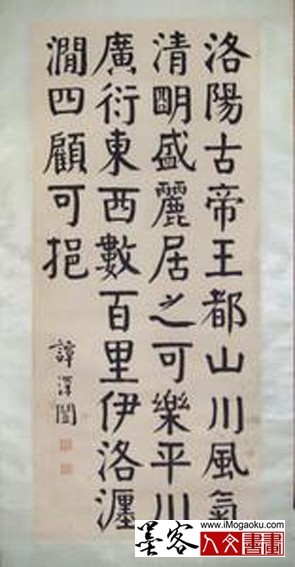 洛陽古帝王都山川風氣
清明盛麗居之可樂平川
廣衍東西數百里伊洛瀍
澗四顧可挹
譚澤闓
www.iMogaoku.com
墨客人文書畫